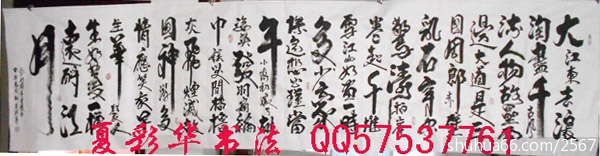 大江東去浪
淘盡千古風
流人物故壘西
邊人道是三
國周郎赤壁
乱石穿空
驚濤拍岸
卷起千堆
雪江山如畫一時
多少豪
傑遙想公瑾當
年小喬初嫁了雄
姿英發羽扇綸
巾談笑間檣櫓
灰飛煙滅故
國神遊多
情應笑我早
生華髮人
生如夢一尊
還酹江
月
夏彩华书法 QQ57537766
shuhua66.com/2567